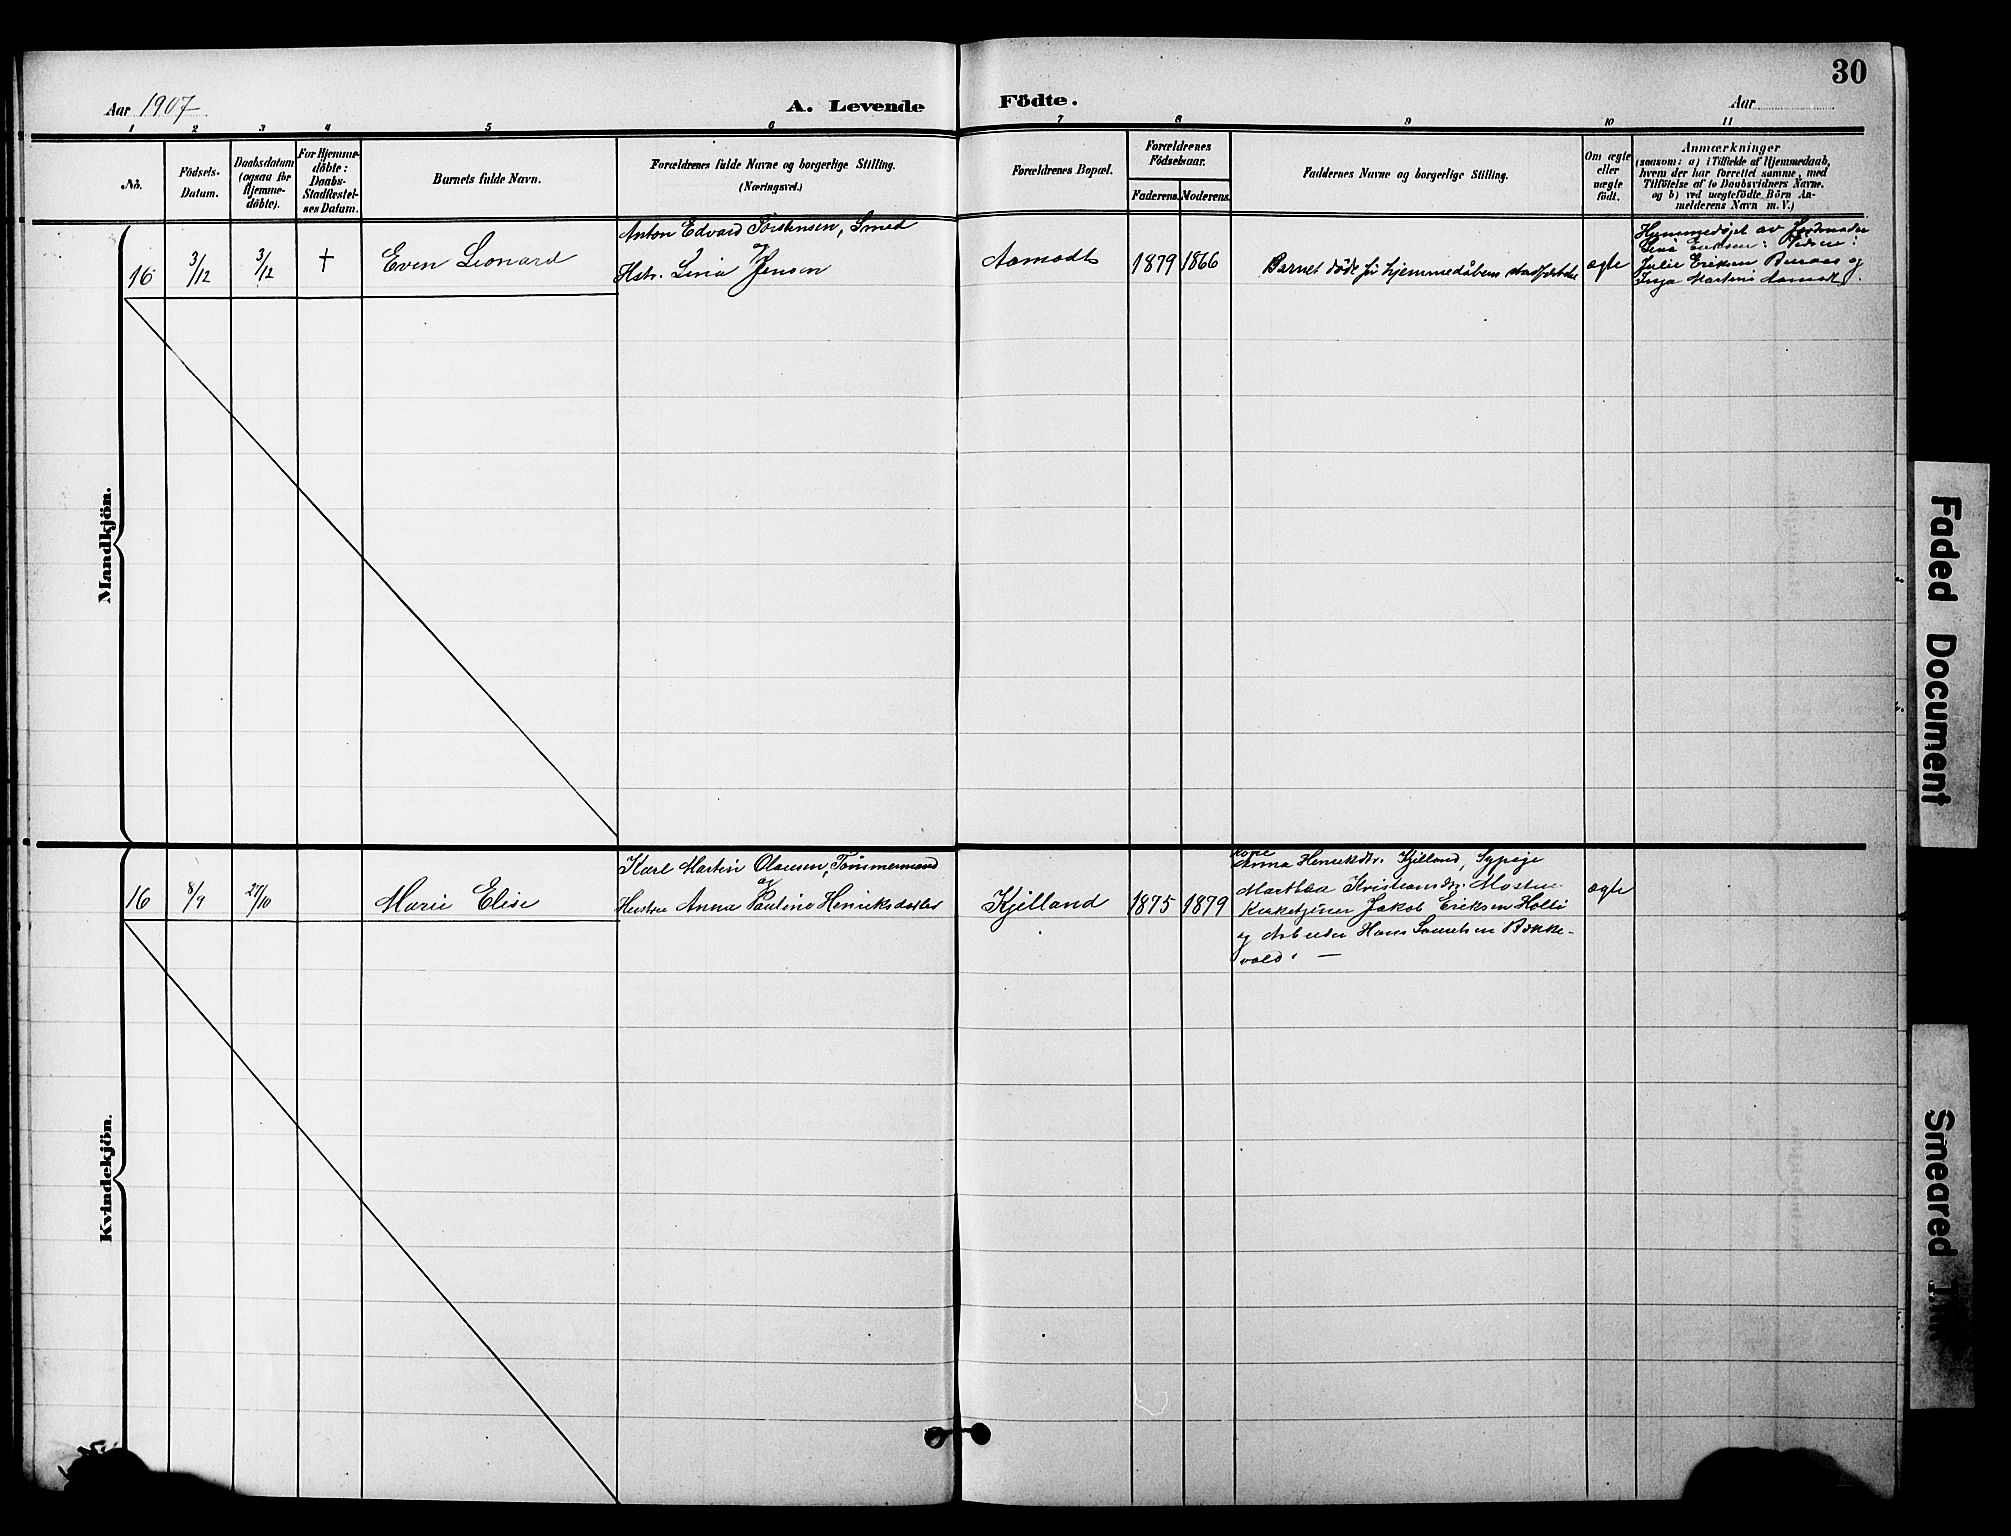 30
Aar 1907
A. Levende Födte.
Aar
1 2 3 4 5 6 7 8 9 10 11
No.
Födsels-
Datum.
Daabsdatum
(ogsaa for
Hjemme-
döbte).
For Hjemme-
döbte:
Daabs-
Stadfæstel-
ses Datum.
Barnets fulde Navn.
Forældrenes fulde Navne og borgerlige Stilling.
(Næringsvei.)
Forældrenes Bopæl.
Forældrenes
Födselsaar.
Faderens. Moderens.
Faddernes Navne og borgerlige Stilling.
Om ægte
eller
uægte
födt.
Anmærkninger
(saasom: a) i Tilfælde af Hjemmedaab,
hvem der har forrettet samme, med
Tilföielse af to Daabsvidners Navne.
og b) ved uægtefödte Börn An-
melderens Navn m. V.)
Mandkjön.
16
3/12
3/12
+
Even Leonard
Anton Edvard Torstensen, Smed
og
Hstr. Lina Jensen
Aamodt
1879
1866
Barnet døde før hjemmedåbens stadfæstelse
ægte
Hjemmedøbt av Jordmoder
Lina Eriksen:
Julie Eriksen Buraas og
Inga Martini Aamodt
Kvindekjön.
16
8/9
27/10
Marie Elise
Karl Martin Olausen, Tømmermand
og
Hustru Anna Pauline Henriksdatter
Kjelland
1875
1879
Kone
Anna Henriksdtr. Kjelland, Sypige
Marthea Kristiansdtr. Mostue
Kirketjener Jakob Eriksen Holte
og Arbeider Hans Samuelsen Bække-
vold. —
ægte
Faded Document
Smeared Ink